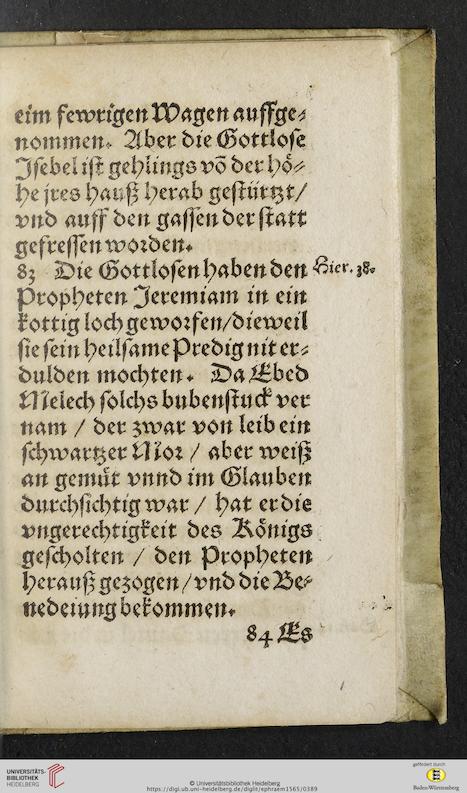 eim fewrigen Wagen auffge⸗
nommen. Aber die Gottlose
Jsebel ist gehlings võ der hö⸗
he jres hauß herab gestürtzt/
vnd auff den gassen der statt
gefressen worden.
83 Die Gottlosen haben den Hier. 38.
Propheten Jeremiam in ein
kottig loch geworfen/dieweil
sie sein heilsame Predig nit er⸗
dulden mochten. Da Ebed
Melech solchs bubenstuck ver
nam / der zwar von leib ein
schwartzer Mor / aber weiß
an gemüt vnnd im Glauben
durchsichtig war / hat er die
vngerechtigkeit des Königs
gescholten / den Propheten
herauß gezogen/vnd die Be⸗
nedeiung bekommen.
84 Es
UNIVERSITÄTS-
BIBLIOTHEK
HEIDELBERG
© Universitätsbibliothek Heidelberg
https://digi.ub.uni-heidelberg.de/diglit/ephraem1565/0389
gefördert durch
Baden-Württemberg